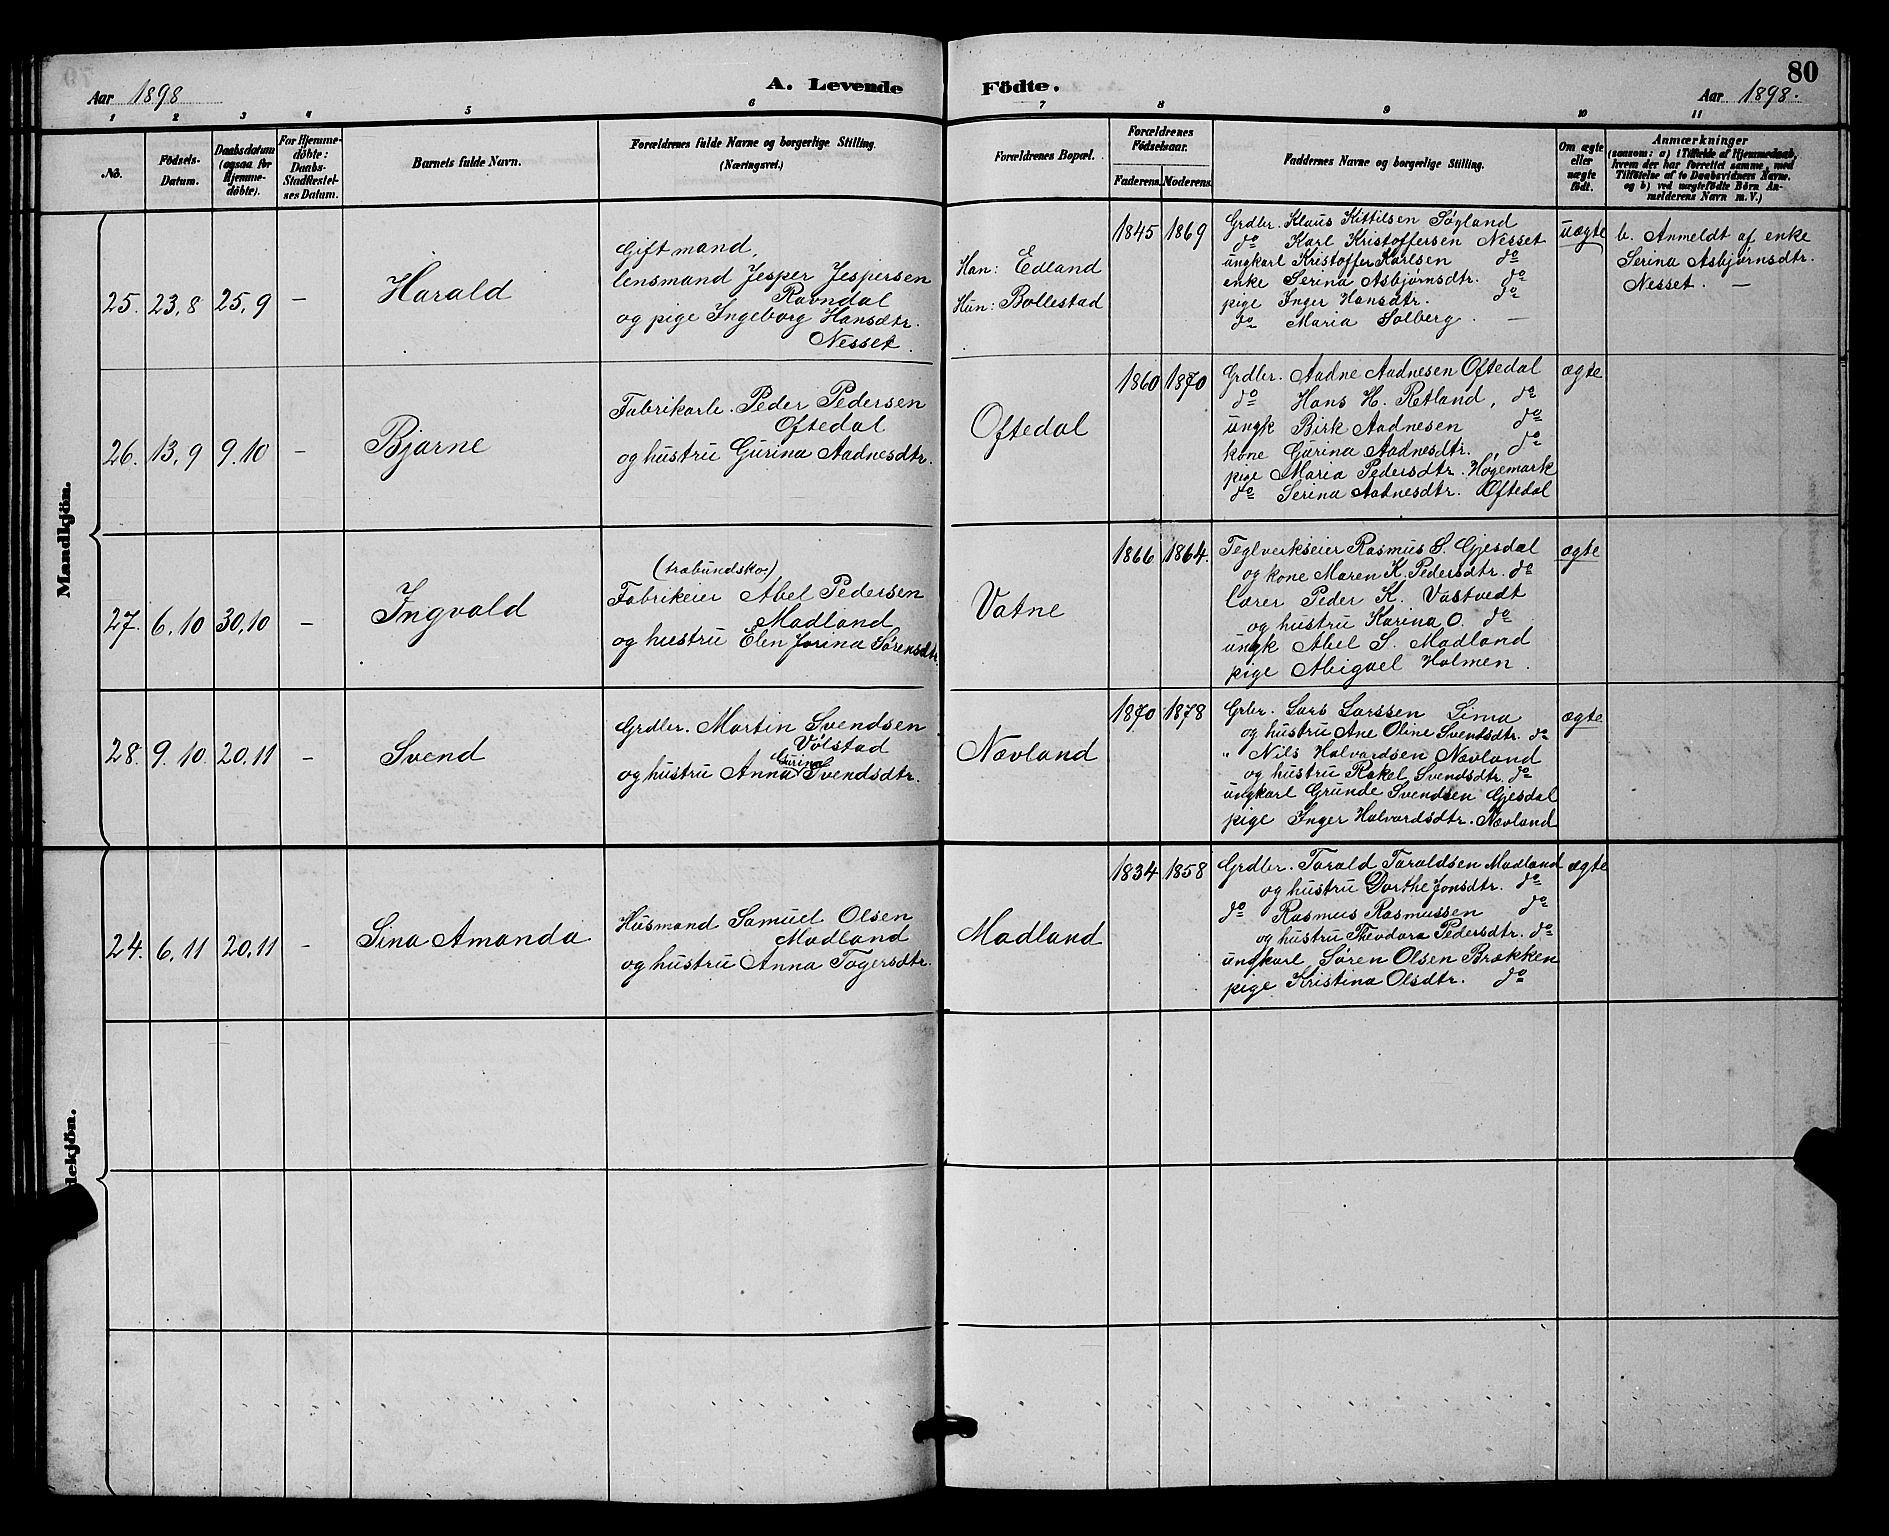 80
Aar 1898
A. Levende Födte.
Aar 1898.
1 2 3 4 5 6 7 8 9 10 11
No.
Födsels-
Datum.
Daabsdatum
(ogsaa for
Hjemme-
döbte).
For Hjemme-
döbte:
Daabs-
Stadfæstel-
ses Datum.
Barnets fulde Navn.
Forældrenes fulde Navne og borgerlige Stilling.
(Næringsvei.)
Forældrenes Bopæl.
Forældrenes
Födselsaar.
Faderens. Moderens.
Faddernes Navne og borgerlige Stilling.
Om ægte
eller
uægte
födt.
Anmærkninger
(saasom: a) i Tilfælde af Hjemmedaab,
hvem der har forrettet samme, med
Tilföielse af to Daabsvidners Navne,
og b) ved uægtefödte Börn An-
melderens Navn m. V.)
Mandkjön.
25. 23,8 25,9 – Harald
Gift mand,
lensmand Jesper Jespersen
Ravndal
og pige Ingeborg Hansdtr.
Nesset.
Han: Edland
Hun: Bollestad
1845 1869
Grdbr. Klaus Kittilsen Søyland
do Karl Kristoffersen Nesset
ungkarl Kristoffer Karlsen do
enke Serina Asbjørnsdtr. do
pige Inger Hansdtr. do
do Maria Solberg. –
uægte
b. Anmeldt af enke
Serina Asbjørnsdtr.
Nesset. –
26. 13,9 9.10 – Bjarne
Fabrikarb. Peder Pedersen
Oftedal
og hustru Gurina Aadnesdtr.
Oftedal
1860 1870
Grdbr. Aadne Aadnesen Oftedal
do Hans H. Retland, do
ungk Birk Aadnesen do
kone Gurina Aadnesdtr. do
pige Maria Pedersdtr. Høgemark
do Serina Aadnesdtr. Oftedal
ægte
27. 6,10 30,10 – Ingvald
(træbundsko)
Fabrikeier Abel Pedersen
Madland
og hustru Elen Jorina Sørensdtr.
Vatne
1866 1864.
Teglverkseier Rasmus S. Gjesdal
og kone Maren K. Pedersdtr. do
lærer Peder K. Vastvedt
og hustru Karina O. do
ungk Abel S. Madland
pige Abigael Holmen.
ægte
28. 9.10. 20.11 – Svend
Grdbr. Martin Svendsen
Vølstad
Gurina
og hustru Anna Svendsdtr.
Nævland
1870 1878
Grbr. Lars Larssen Lima
og hustru Ane Oline Svendsdtr. do
" Nils Halvardsen Nævland
og hustru Rakel Svendsdtr. do
ungkarl Grunde Svendsen Gjesdal
pige Inger Halvardsdtr. Nævland
ægte
dekjön.
24. 6,11 20,11 – Sina Amanda
Husmand Samuel Olsen
Madland
og hustru Anna Togersdtr.
Madland
1834 1858
Grdbr. Tarald Taraldsen Madland
og hustru Dorthe Jonsdtr. do
do Rasmus Rasmussen do
og hustru Theodora Pedersdtr. do
ungkarl Søren Olsen Brækken
pige Kristina Olsdtr. do
ægte